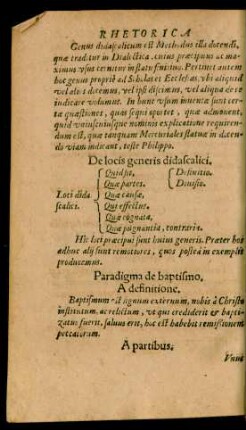 RHETORICA
Genus didascalicum est Methodus illa docendi,
quæ traditur in Dialectica. cuius præcipuus ac ma-
ximus usus cernitur in statu finitiuo. Pertinet autem
hoc genus propriè ad Scholas et Ecclesias, ubi aliquid
vel alios docemus, vel ipsi discimus, vel aliqua de re
iudicare volumus. In hunc usum inuentæ sunt cer-
ta quæstiones, quas sequi oportet, quæ admonent,
quid vniuscuiusque nominis explicatione requiren-
dum est, quæ tanquam Mercuriales statuæ in dicen-
do viam indicant, teste Philippo.
De locis generis didascalici.
Loci dida
scalici.
Quid sit, Definitio.
Quæ partes. Diuisio.
Quæ causæ,
Qui effectus.
Quæ cognata,
Quæ pugnantia, contraria.
Hic loci præcipui sunt huius generis. Præter hos
adhuc alij sunt remotiores, quos postea in exemplis
producemus.
Paradigma de baptismo.
A definitione.
Baptismum est signum externum, nobis à Christo
institutum ac relictum, ut qui crediderit & bapti-
zatus fuerit, saluus erit, hoc est habebit remissionem
peccatorum.
A partibus.
Vnus